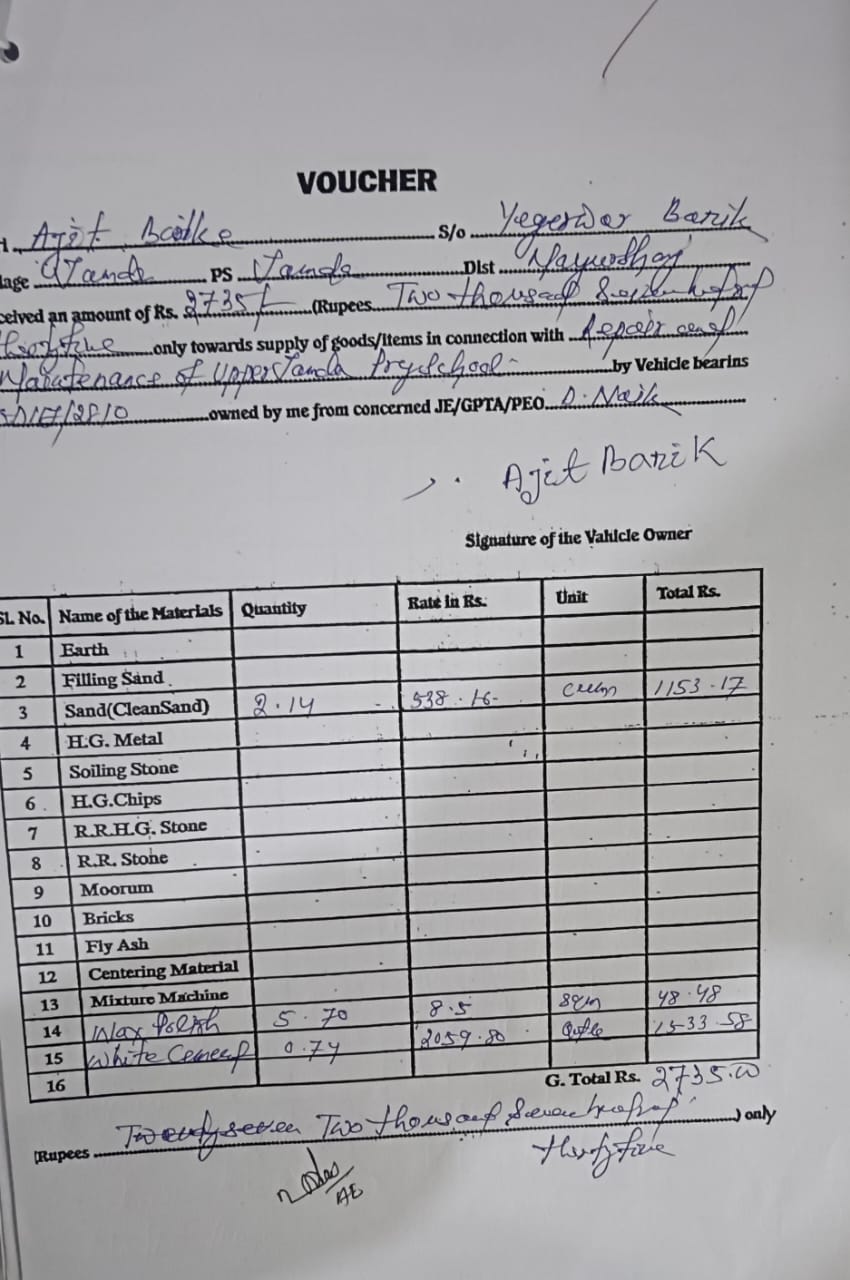 VOUCHER
Ajit S/o Yegerwar Barik
lage Tanda PS Tanda Dist
ceived an amount of Rs. 2735/- (Rupees Two thousand
only towards supply of goods/items in connection with Repair and
Maintenance of Upper Tanda by Vehicle bearins
owned by me from concerned JE/GPTA/PEO D. Naik
Ajit Barik
Signature of the Vahicle Owner
SL. No. Name of the Materials Quantity Rate in Rs. Unit Total Rs.
1 Earth
2 Filling Sand
3 Sand(CleanSand) 2.14 538.16 Cum 1153.17
4 H.G. Metal
5 Soiling Stone
6 H.G.Chips
7 R.R.H.G. Stone
8 R.R. Stone
9 Moorum
10 Bricks
11 Fly Ash
12 Centering Material
13 Mixture Machine
14 Wax Polish 5.70 8.5 Sqm 48.48
15 White Cement 0.74 2059.80 1533.58
16
G. Total Rs. 2735.00
(Rupees Two thousand ) only
AE